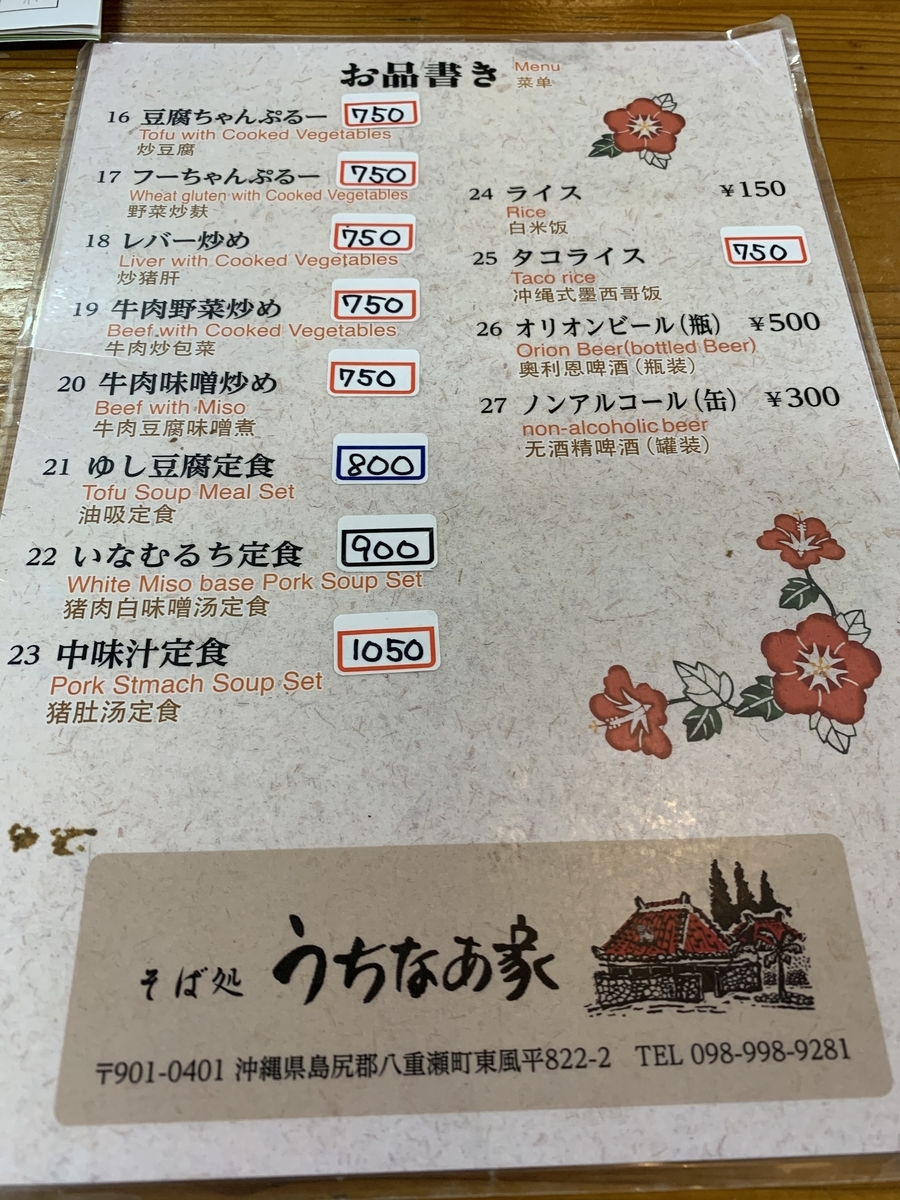 お品書き Menu
菜单
16 豆腐ちゃんぷるー 750
Tofu with Cooked Vegetables
炒豆腐
17 フーちゃんぷるー 750
Wheat gluten with Cooked Vegetables
野菜炒麸
18 レバー炒め 750
Liver with Cooked Vegetables
炒猪肝
19 牛肉野菜炒め 750
Beef with Cooked Vegetables
牛肉炒包菜
20 牛肉味噌炒め 750
Beef with Miso
牛肉豆腐味噌煮
21 ゆし豆腐定食 800
Tofu Soup Meal Set
油吸定食
22 いなむるち定食 900
White Miso base Pork Soup Set
猪肉白味噌汤定食
23 中味汁定食 1050
Pork Stmach Soup Set
猪肚汤定食
24 ライス ¥150
Rice
白米饭
25 タコライス 750
Taco rice
冲绳式墨西哥饭
26 オリオンビール(瓶) ¥500
Orion Beer(bottled Beer)
奥利恩啤酒(瓶装)
27 ノンアルコール(缶) ¥300
non-alcoholic beer
无酒精啤酒(罐装)
そば処 うちなあ家
〒901-0401 沖縄県島尻郡八重瀬町東風平822-2 TEL 098-998-9281